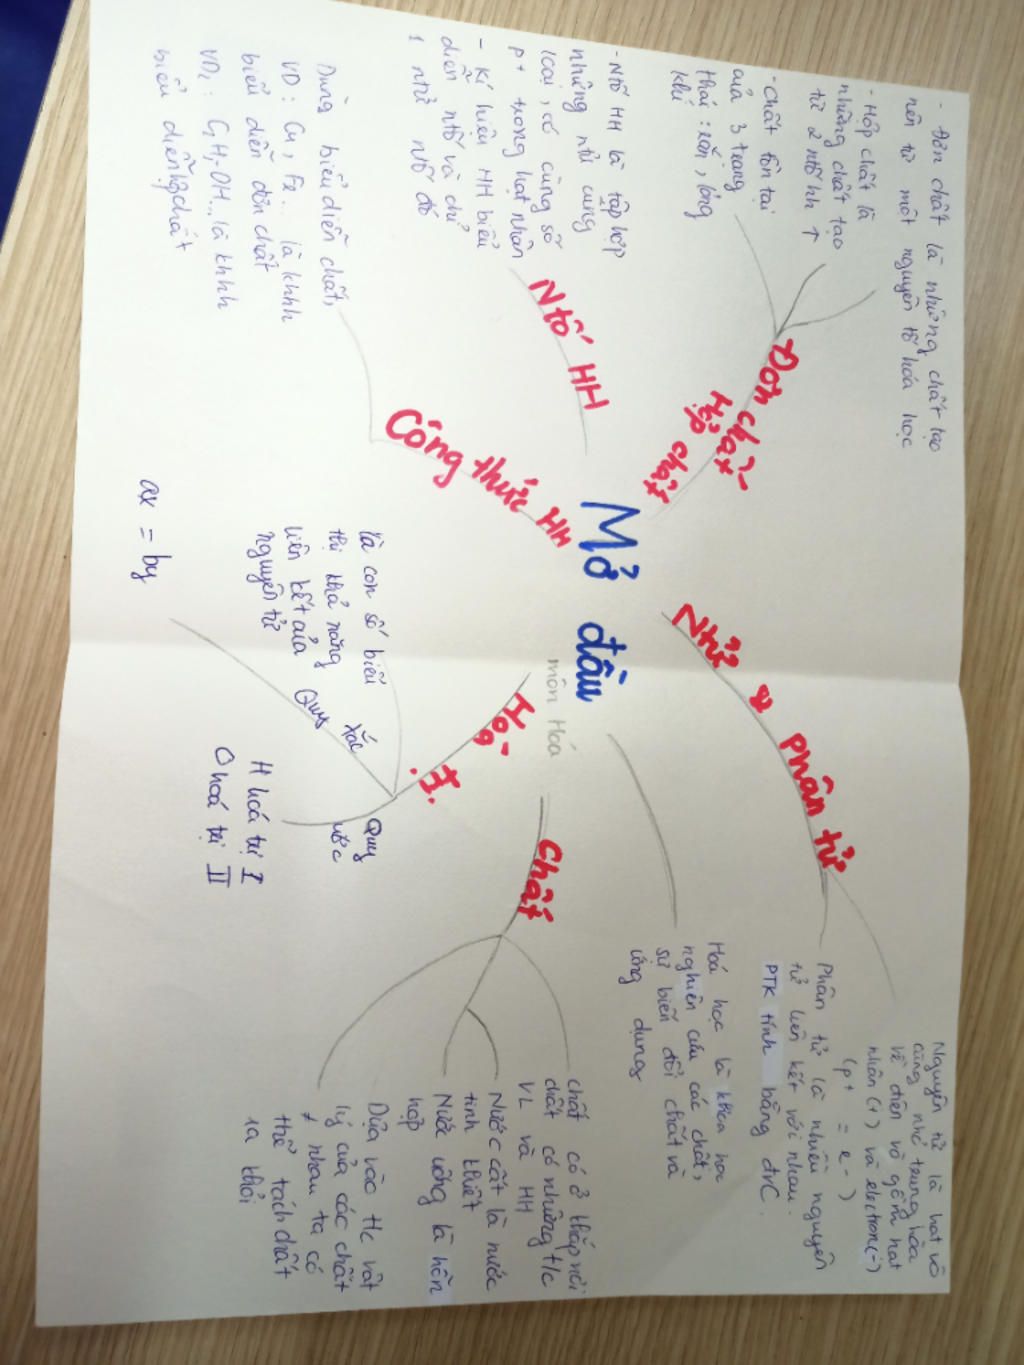 Mở đầu
môn Hoá
Đơn chất -
Hợp chất
- Đơn chất là những chất tạo
nên từ một nguyên tố hóa học
- Hợp chất là
những chất tạo
từ 2 ntố hh ↑
- Chất tồn tại
ở 3 trạng
thái : rắn, lỏng
khí
Ntố HH
- Ntố HH là tập hợp
những ntử cùng
loại, có cùng số
p+ trong hạt nhân
- Kí hiệu HH biểu
diễn ntố và chỉ
1 ntử ntố đó
Công thức HH
Dùng biểu diễn chất,
VD: Cu, Fe... là khhh
biểu diễn đơn chất
VD2: CH3-OH... là khhh
biểu diễn hợp chất
Ntử & phân tử
Nguyên tử là hạt vô
cùng nhỏ trung hòa
về điện vỏ gồm hạt
nhân (+) và electron (-)
(p+ = e-)
Phân tử là nhiều nguyên
tử liên kết với nhau.
PTK tính bằng đvC.
Hoá học là khoa học
nghiên cứu các chất,
sự biến đổi chất và
ứng dụng
Chất
chất có ở khắp nơi
chất có những t/c
VL và HH
Nước cất là nước
tinh khiết
Nước uống là hỗn
hợp
Dựa vào t/c vật
lý của các chất
≠ nhau ta có
thể tách chất
ra khỏi
là con số biểu
thị khả năng
liên kết của
nguyên tử
Quy tắc
ax = by
Quy
ước
H hoá trị I
O hoá trị II